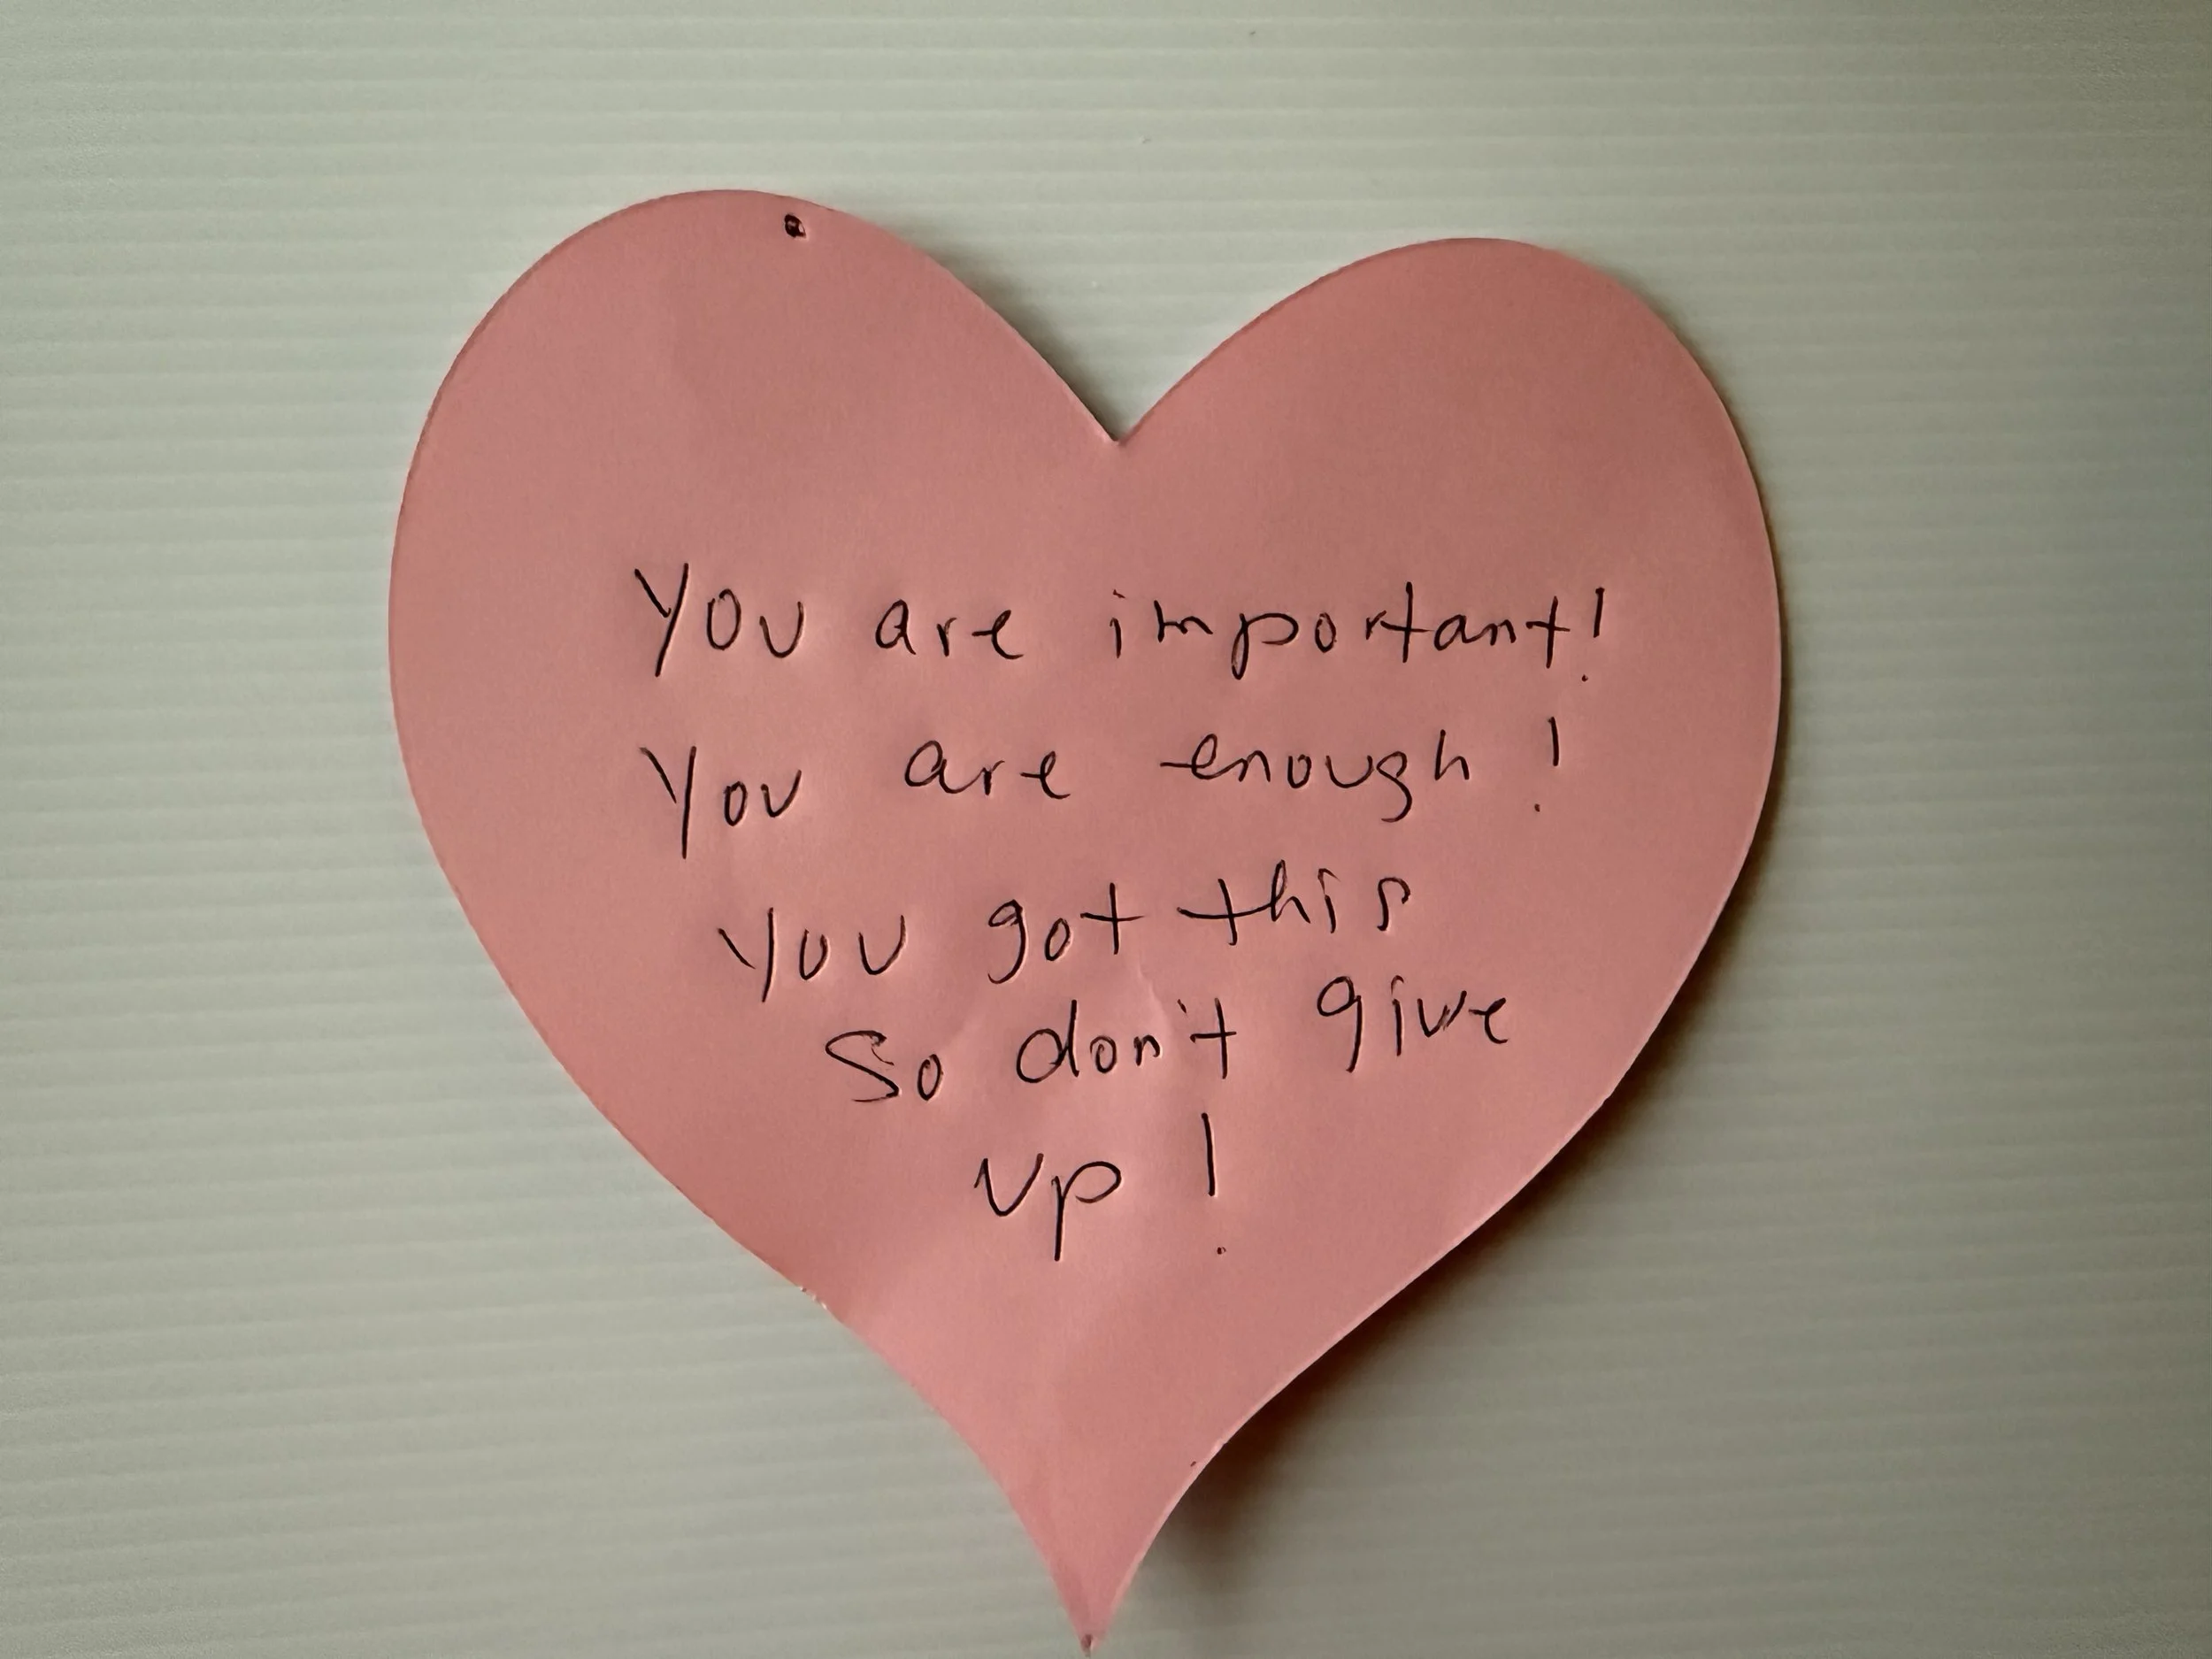 You are important!
You are enough!
You got this
So don't give
up!